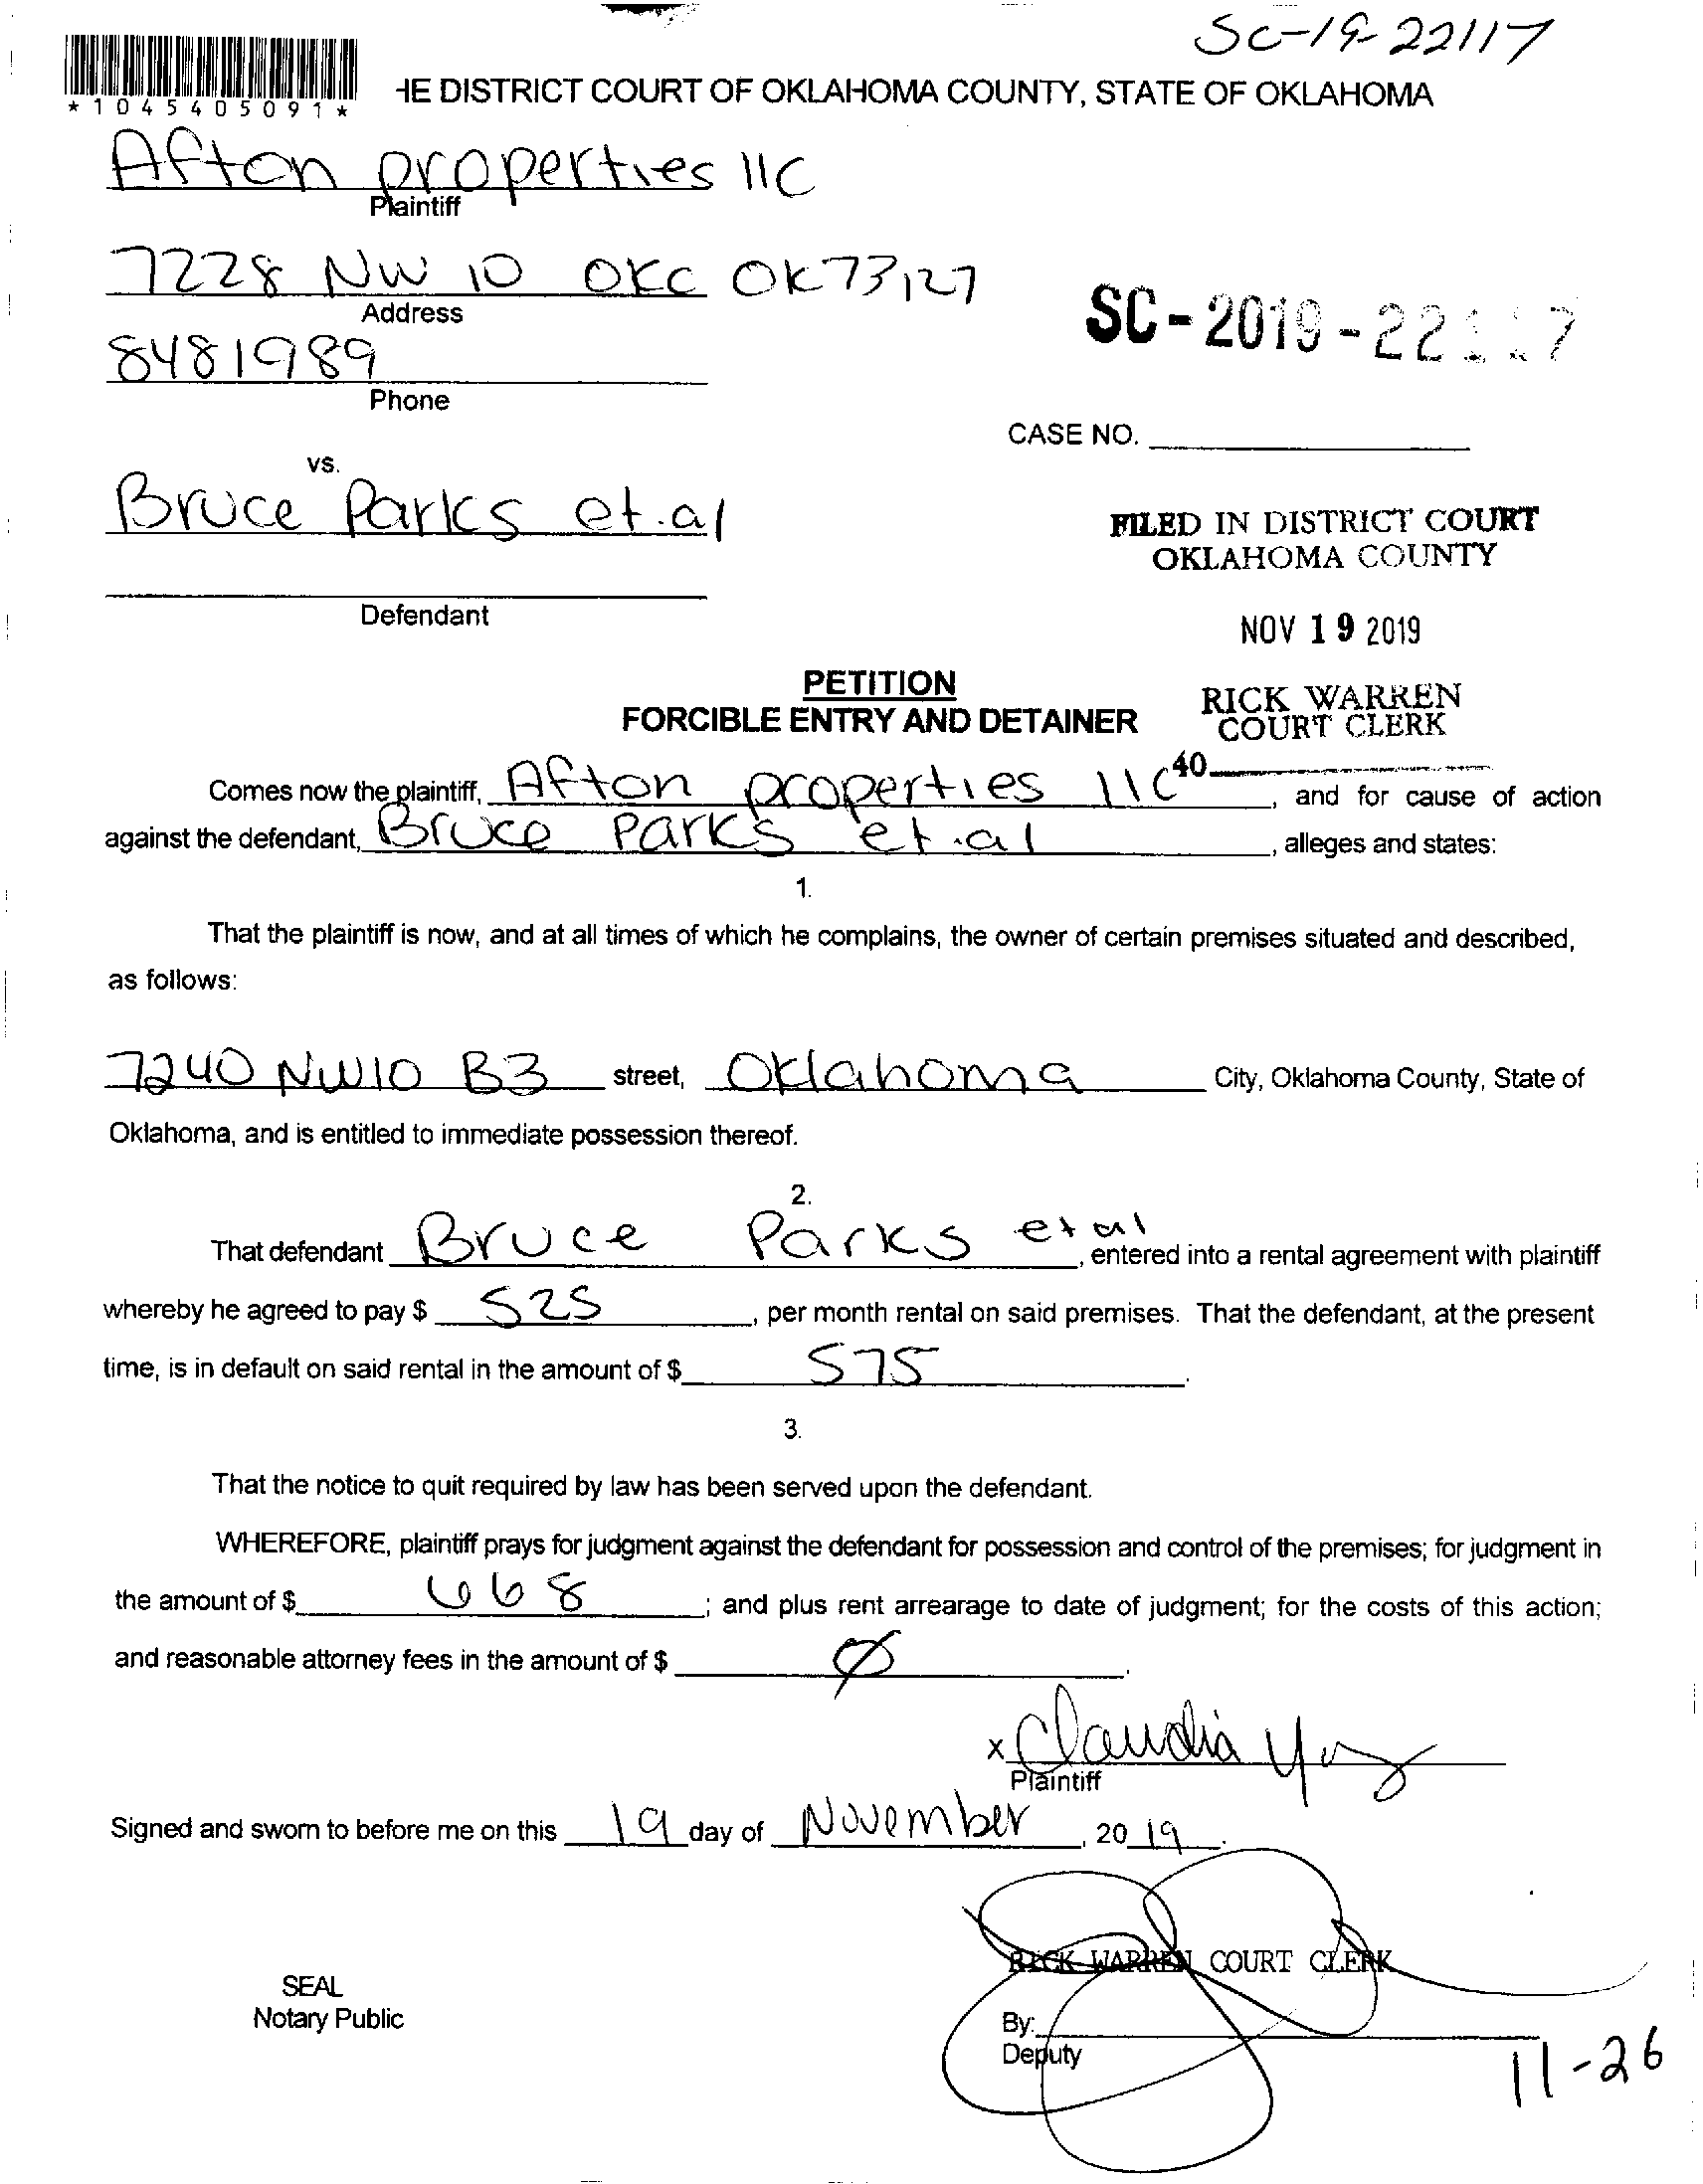 SC-19-22117
*1045405091*
HE DISTRICT COURT OF OKLAHOMA COUNTY, STATE OF OKLAHOMA
Afton properties llc
Plaintiff
7228 NW 10 OKC OK 73127
Address
SC-2019-22117
8481989
Phone
CASE NO.
vs.
Bruce Parks et.al
FILED IN DISTRICT COURT
OKLAHOMA COUNTY
Defendant
NOV 19 2019
PETITION
FORCIBLE ENTRY AND DETAINER
RICK WARREN
COURT CLERK
40
Comes now the plaintiff, Afton properties llc, and for cause of action
against the defendant, Bruce Parks et.al, alleges and states:
1.
That the plaintiff is now, and at all times of which he complains, the owner of certain premises situated and described,
as follows:
7240 NW10 B3 street, Oklahoma City, Oklahoma County, State of
Oklahoma, and is entitled to immediate possession thereof.
2.
That defendant Bruce Parks et al, entered into a rental agreement with plaintiff
whereby he agreed to pay $ 525, per month rental on said premises. That the defendant, at the present
time, is in default on said rental in the amount of $ 575.
3.
That the notice to quit required by law has been served upon the defendant.
WHEREFORE, plaintiff prays for judgment against the defendant for possession and control of the premises; for judgment in
the amount of $ 668; and plus rent arrearage to date of judgment; for the costs of this action;
and reasonable attorney fees in the amount of $ Ø.
x Claudia
Plaintiff
Signed and sworn to before me on this 19 day of November, 2019.
RICK WARREN COURT CLERK
SEAL
Notary Public
By:
Deputy
11-26